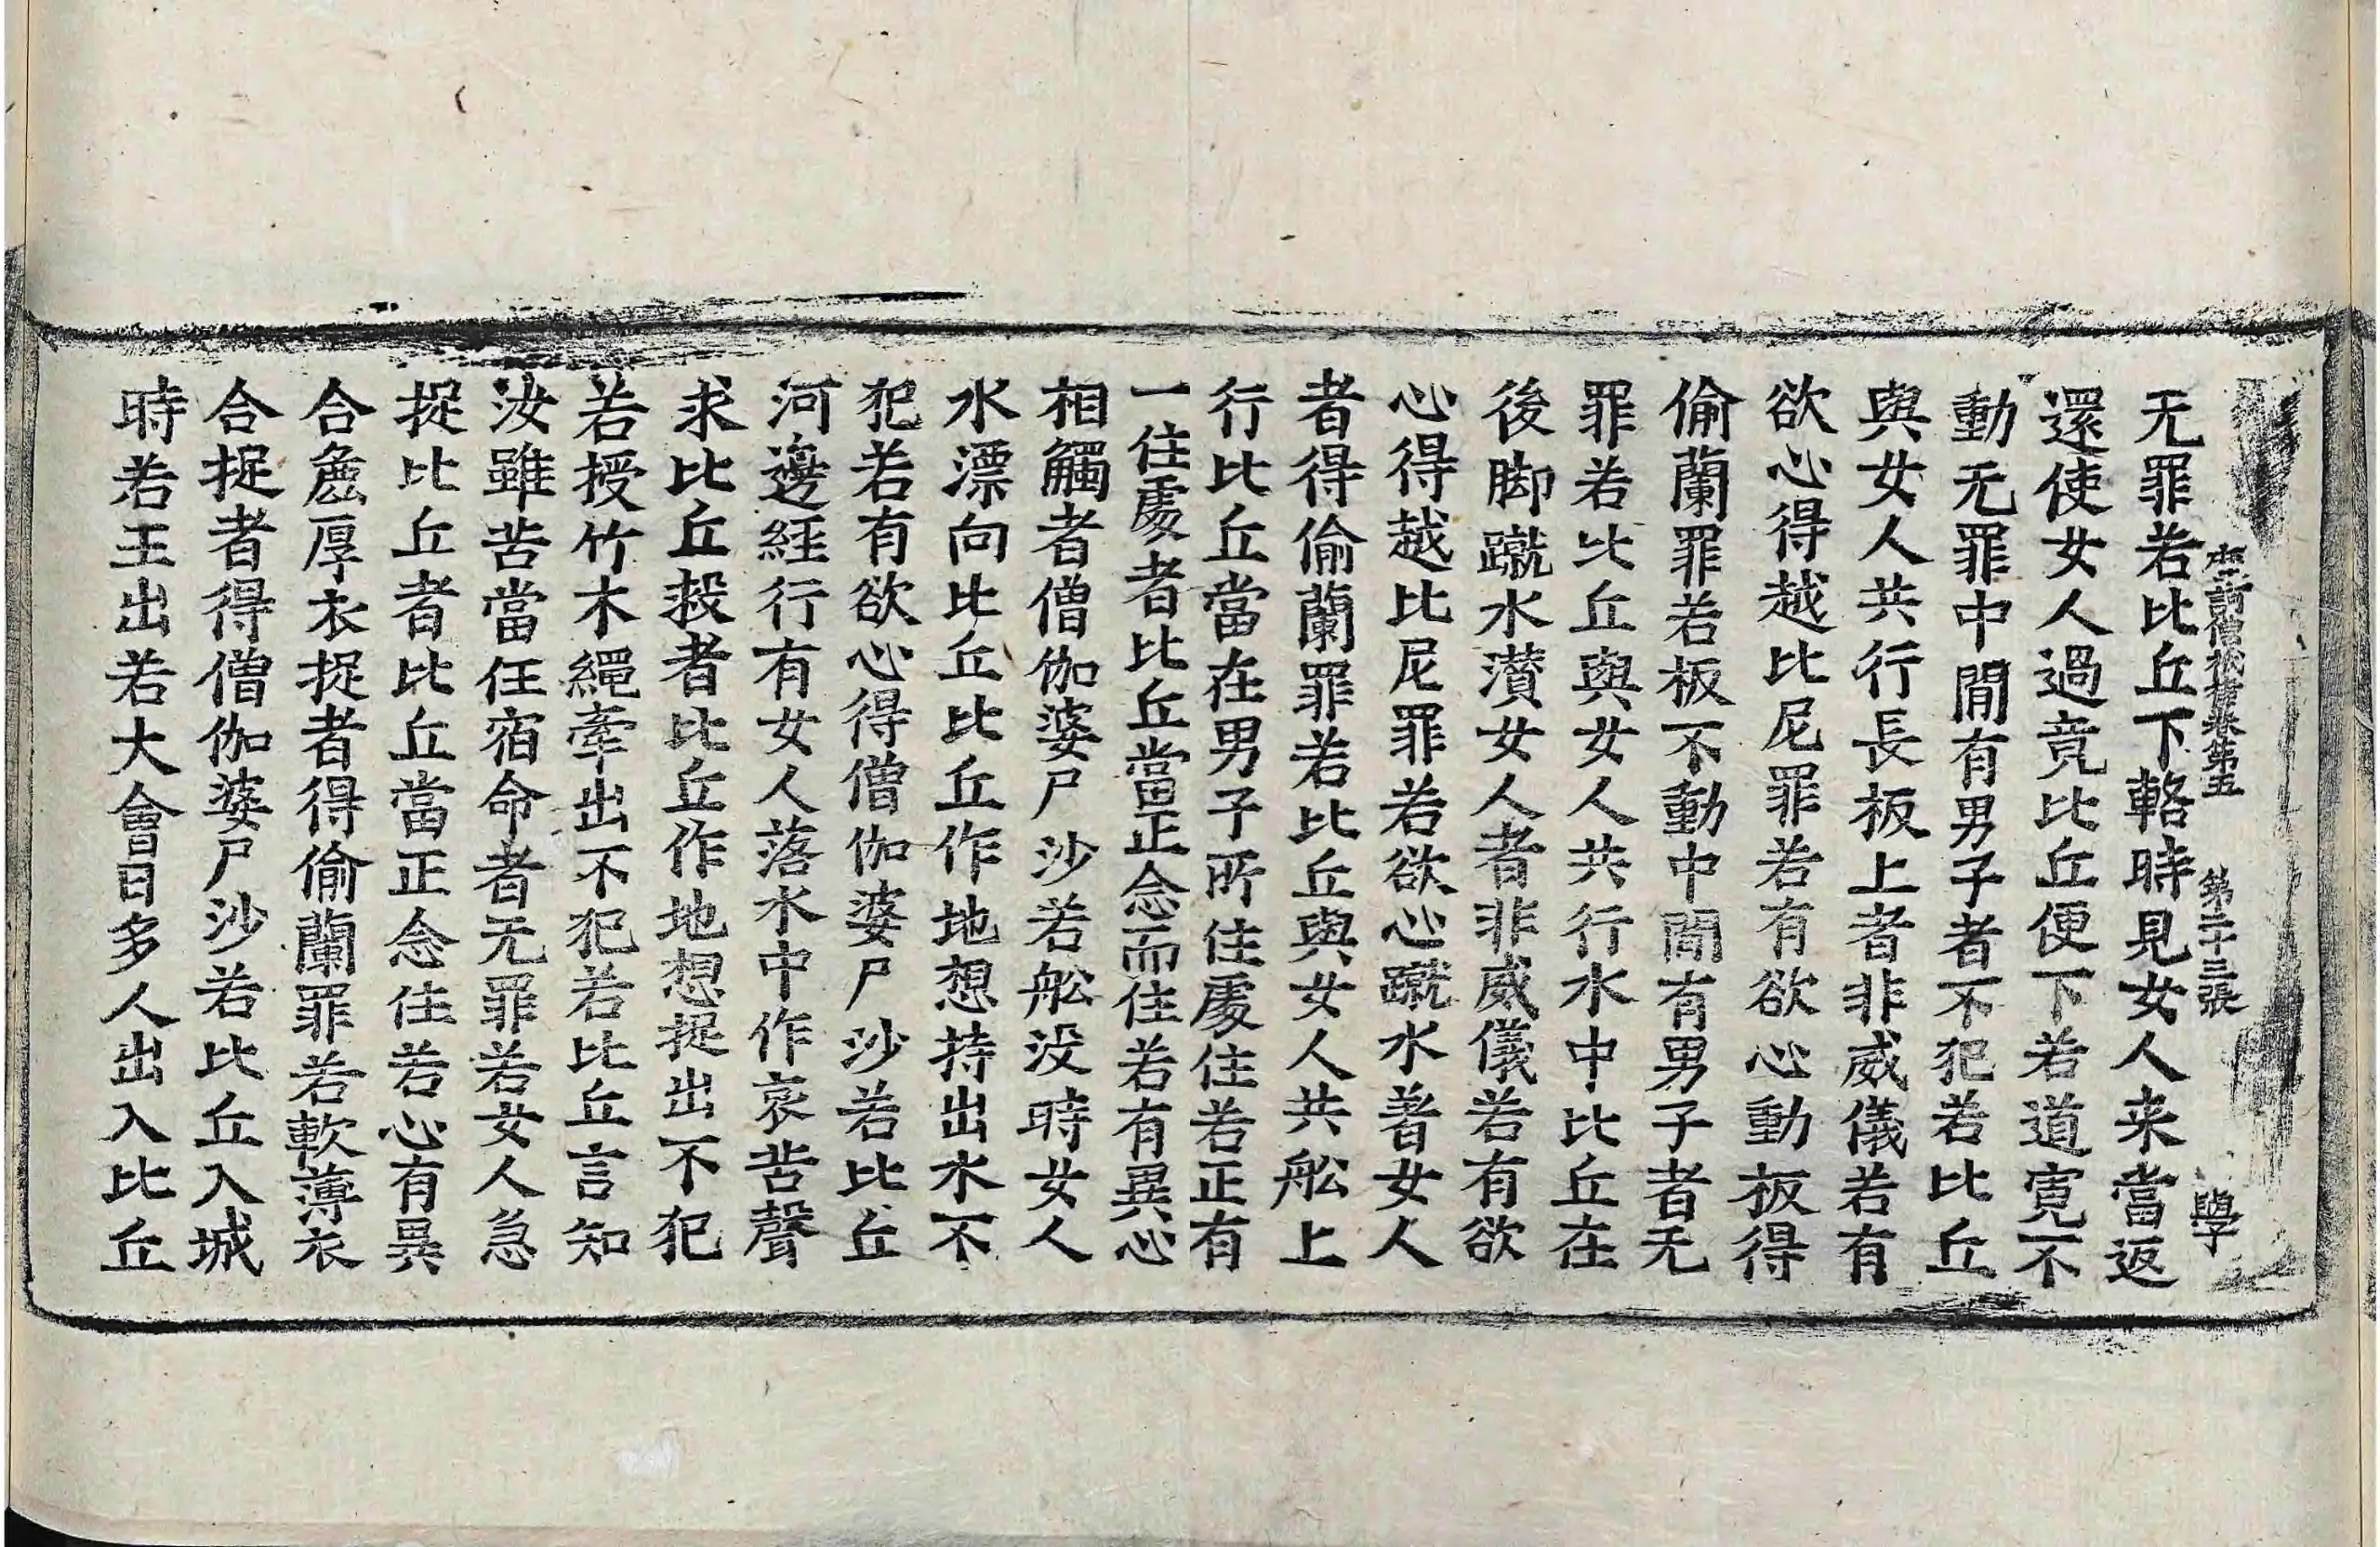 摩訶僧祇律卷第五 第二十三張 學
无罪若比丘下輅時見女人来當返
還使女人過竟比丘便下若道寬不
動无罪中間有男子者不犯若比丘
與女人共行長板上者非威儀若有
欲心得越比尼罪若有欲心動板得
偷蘭罪若板不動中間有男子者无
罪若比丘與女人共行水中比丘在
後脚蹴水濺女人者非威儀若有欲
心得越比尼罪若欲心蹴水著女人
者得偷蘭罪若比丘與女人共舩上
行比丘當在男子所住處住若正有
一住處者比丘當正念而住若有異心
相觸者僧伽婆尸沙若舩没時女人
水漂向比丘比丘作地想持出水不
犯若有欲心得僧伽婆尸沙若比丘
河邊經行有女人落水中作哀苦聲
求比丘救者比丘作地想捉出不犯
若授竹木繩牽出不犯若比丘言知
汝雖苦當任宿命者无罪若女人急
捉比丘者比丘當正念住若心有異
合麁厚衣捉者得偷蘭罪若軟薄衣
合捉者得僧伽婆尸沙若比丘入城
時若王出若大會日多人出入比丘